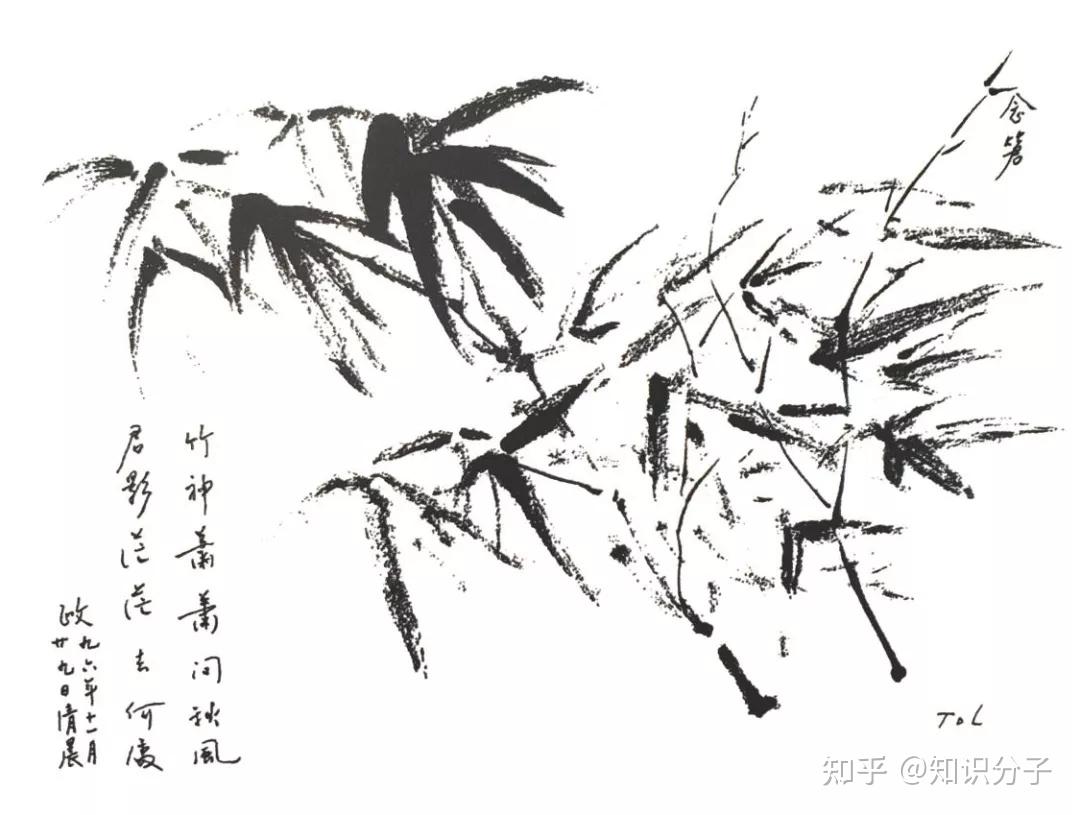 念䇹
竹神蕭蕭问秋風
君影茫茫去何處
政九六年十一月
廿九日清晨
TDL
知乎 @知识分子